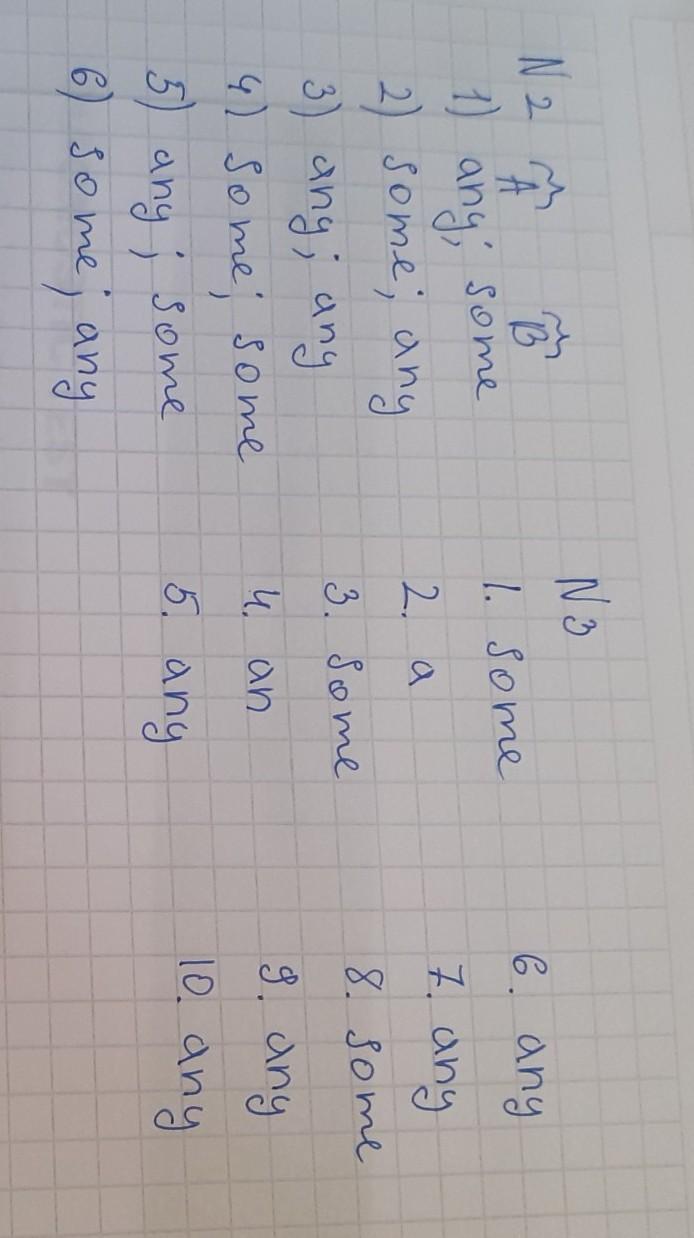 N 2 A B
1) any; some
2) some; any
3) any; any
4) some; some
5) any; some
6) some; any
N 3
1. some
2. a
3. some
4. an
5. any
6. any
7. any
8. some
9. any
10. any